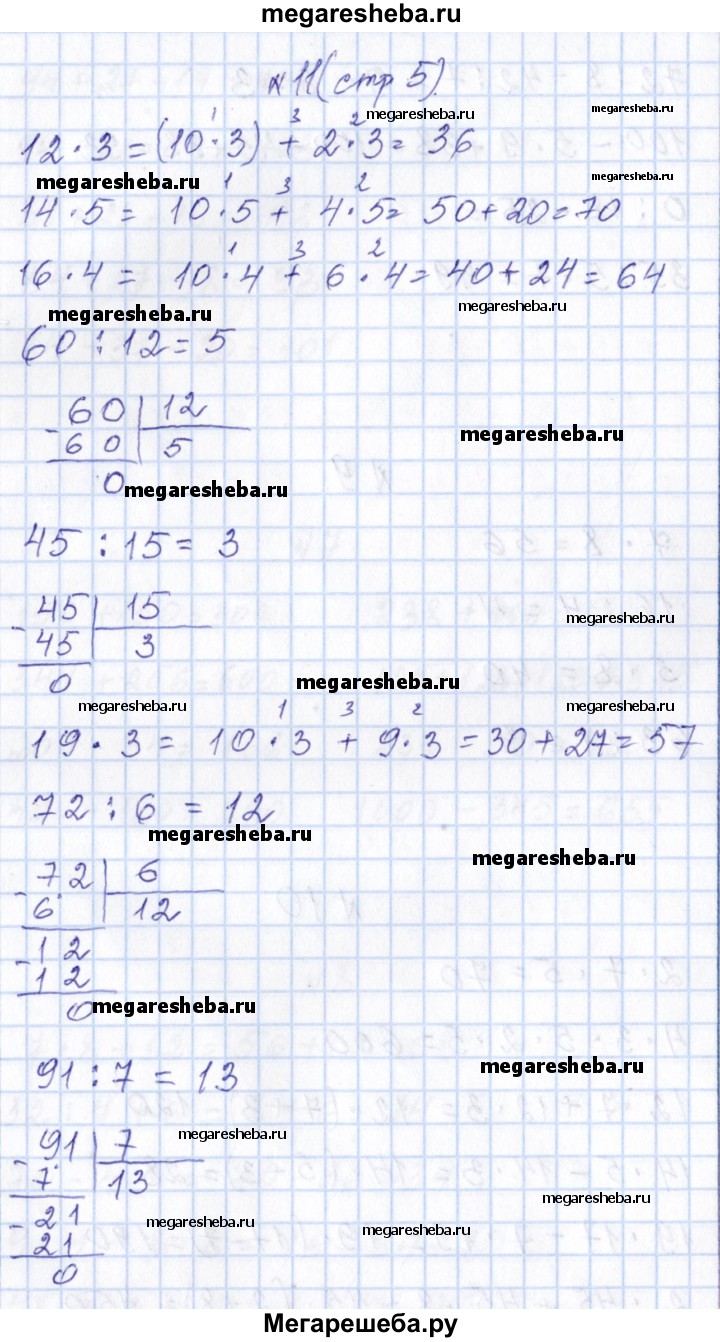 megaresheba.ru
№ 11 (стр 5).
megaresheba.ru
megaresheba.ru
1 3 2
12 · 3 = (10 · 3) + 2 · 3 = 36
megaresheba.ru
megaresheba.ru
1 3 2
14 · 5 = 10 · 5 + 4 · 5 = 50 + 20 = 70
1 3 2
16 · 4 = 10 · 4 + 6 · 4 = 40 + 24 = 64
megaresheba.ru
megaresheba.ru
60 : 12 = 5
- 60 | 12
60 | 5
0
megaresheba.ru
megaresheba.ru
45 : 15 = 3
- 45 | 15
45 | 3
0
megaresheba.ru
megaresheba.ru
megaresheba.ru
megaresheba.ru
1 3 2
19 · 3 = 10 · 3 + 9 · 3 = 30 + 27 = 57
72 : 6 = 12
megaresheba.ru
megaresheba.ru
- 72 | 6
6 | 12
- 12
12
0
megaresheba.ru
91 : 7 = 13
megaresheba.ru
megaresheba.ru
- 91 | 7
7 | 13
- 21
21
0
megaresheba.ru
megaresheba.ru
megaresheba.ru
Мегарешеба.ру